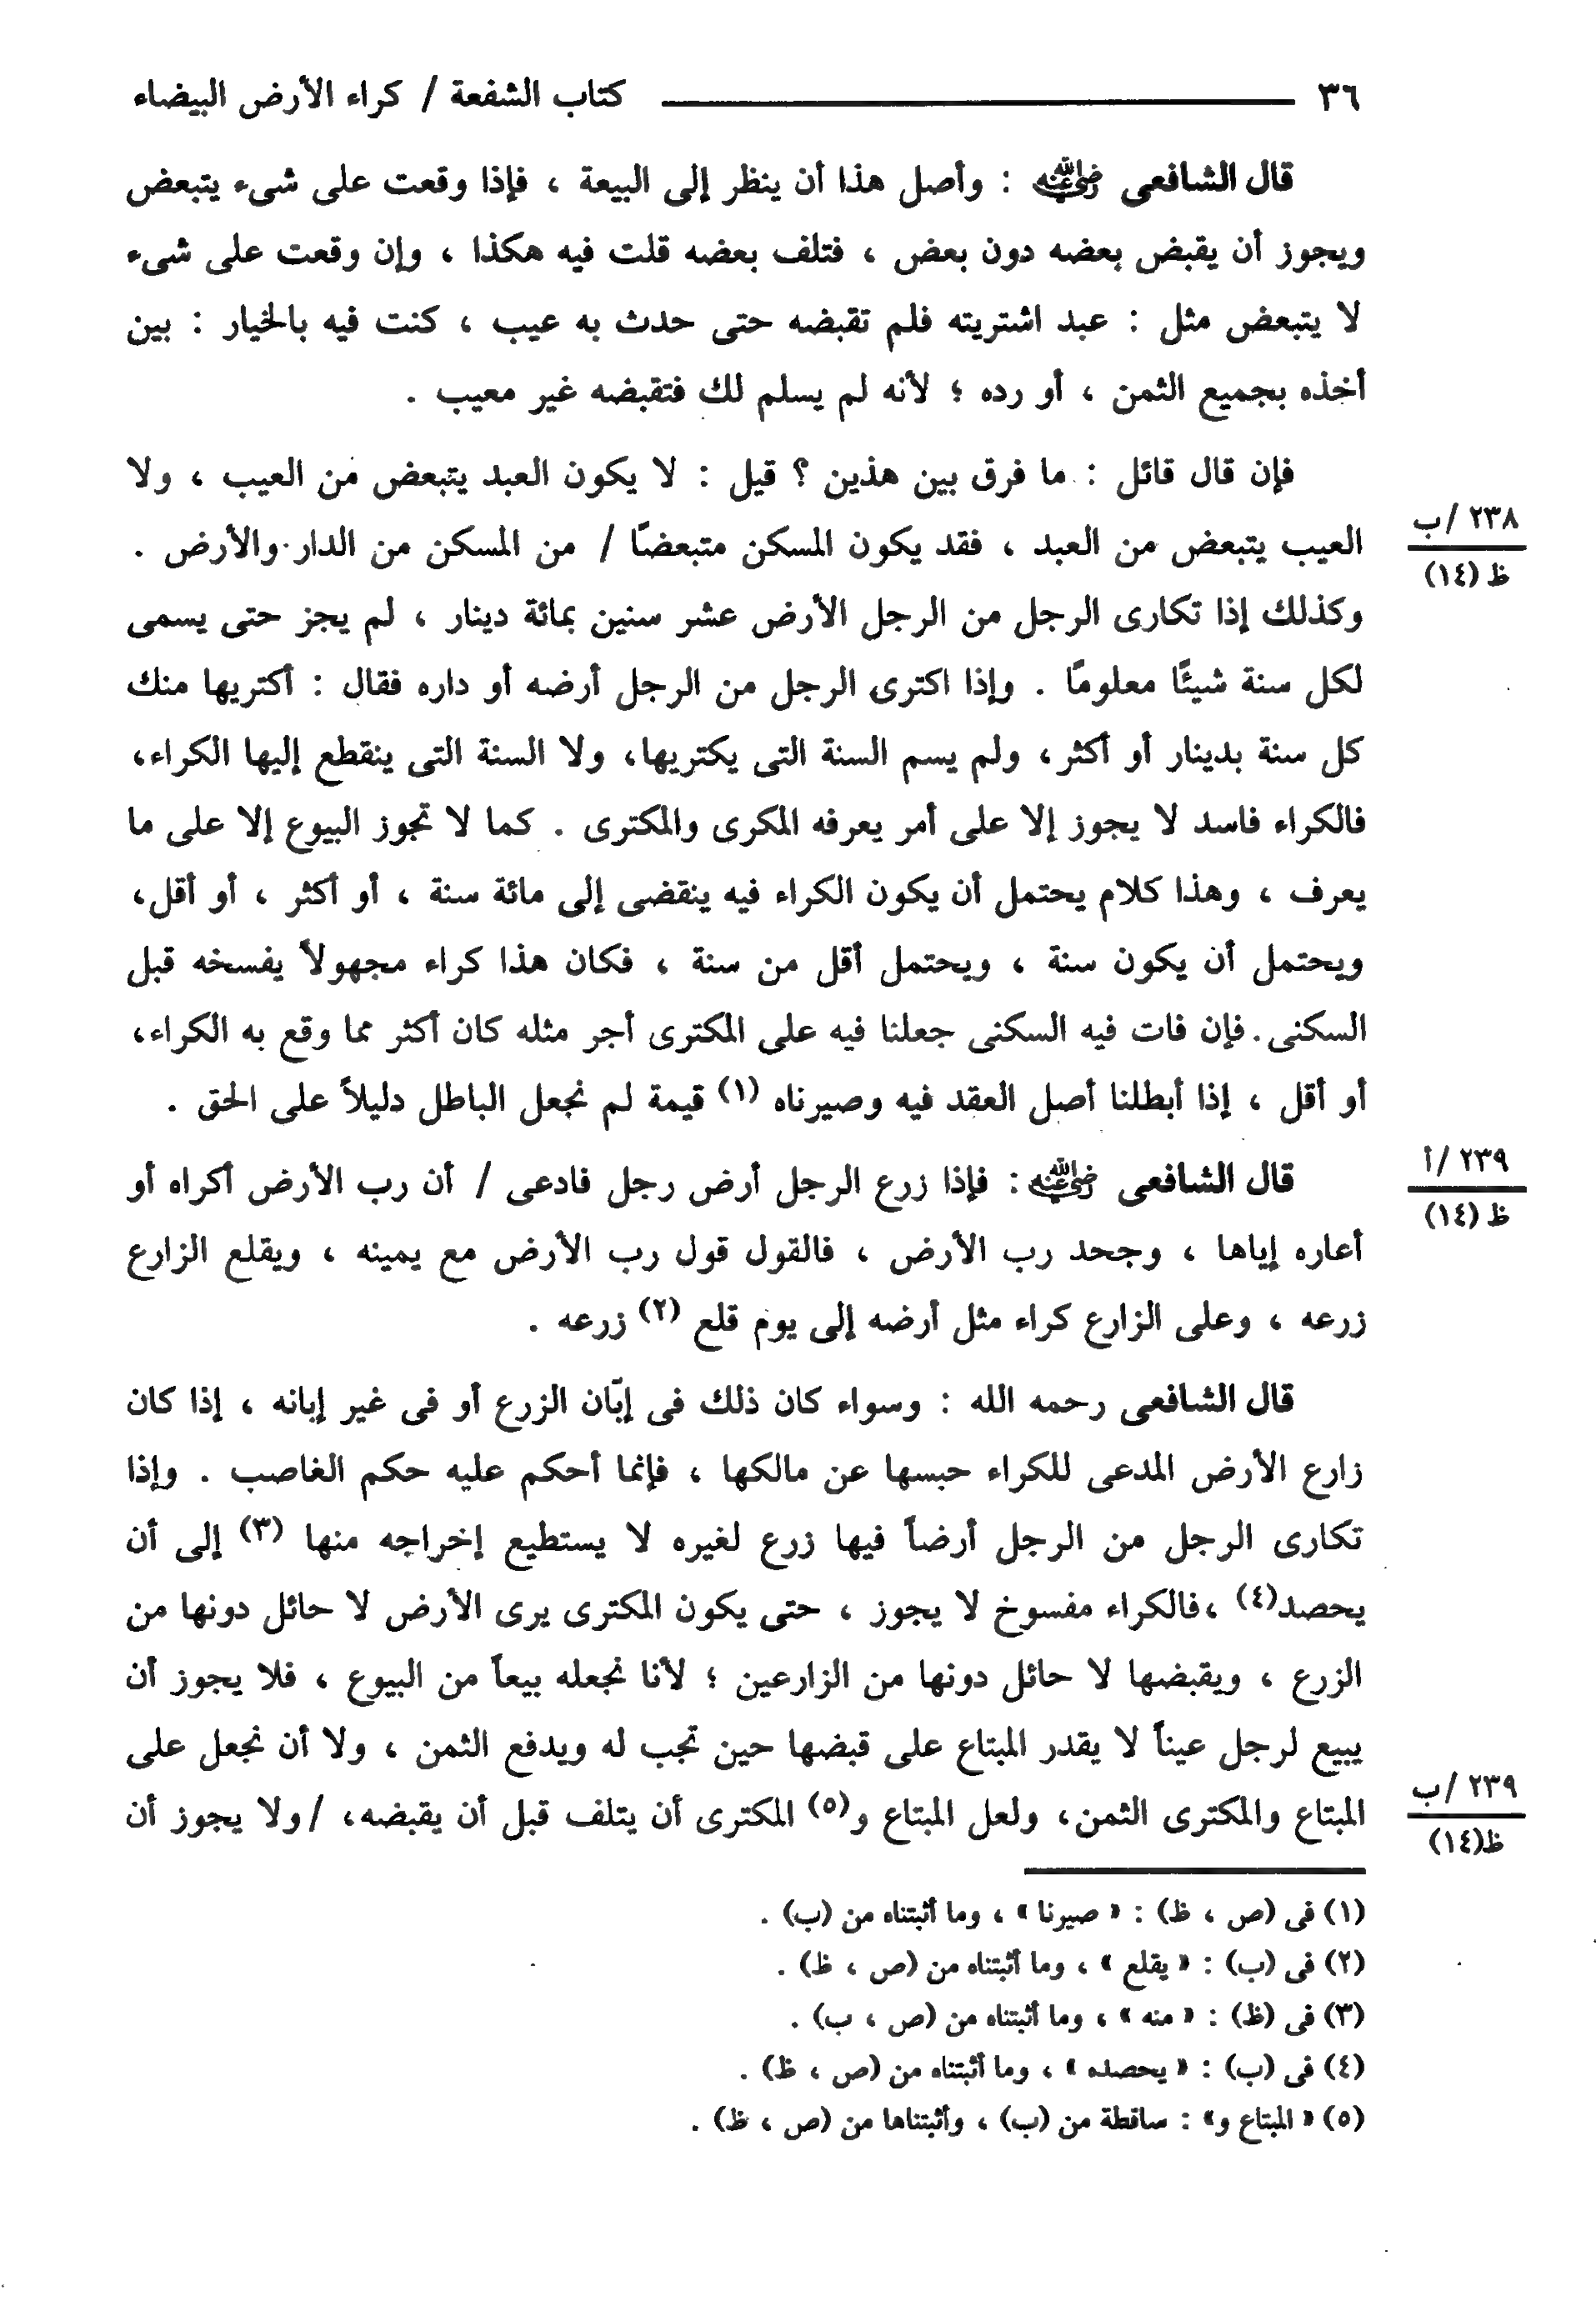 ٣٦ كتاب الشفعة / كراء الأرض البيضاء
قال الشافعى رضي الله عنه : وأصل هذا أن ينظر إلى البيعة ، فإذا وقعت على شىء يتبعض
ويجوز أن يقبض بعضه دون بعض ، فتلف بعضه قلت فيه هكذا ، وإن وقعت على شىء
لا يتبعض مثل : عبد اشتريته فلم تقبضه حتى حدث به عيب ، كنت فيه بالخيار : بين
أخذه بجميع الثمن ، أو رده ؛ لأنه لم يسلم لك فتقبضه غير معيب .
فإن قال قائل : ما فرق بين هذين ؟ قيل : لا يكون العبد يتبعض من العيب ، ولا
العيب يتبعض من العبد ، فقد يكون المسكن متبعضًا / من المسكن من الدار والأرض .
٢٣٨ /ب
ظ (١٤)
وكذلك إذا تكارى الرجل من الرجل الأرض عشر سنين بمائة دينار ، لم يجز حتى يسمى
لكل سنة شيئًا معلومًا . وإذا اكترى الرجل من الرجل أرضه أو داره فقال : أكتريها منك
كل سنة بدينار أو أكثر، ولم يسم السنة التى يكتريها، ولا السنة التى ينقطع إليها الكراء،
فالكراء فاسد لا يجوز إلا على أمر يعرفه المكرى والمكترى . كما لا تجوز البيوع إلا على ما
يعرف ، وهذا كلام يحتمل أن يكون الكراء فيه ينقضى إلى مائة سنة ، أو أكثر ، أو أقل،
ويحتمل أن يكون سنة ، ويحتمل أقل من سنة ، فكان هذا كراء مجهولاً يفسخه قبل
السكنى. فإن فات فيه السكنى جعلنا فيه على المكترى أجر مثله كان أكثر مما وقع به الكراء،
أو أقل ، إذا أبطلنا أصل العقد فيه وصيرناه (١) قيمة لم نجعل الباطل دليلاً على الحق .
قال الشافعى رضي الله عنه : فإذا زرع الرجل أرض رجل فادعى / أن رب الأرض أكراه أو
٢٣٩ /أ
ظ (١٤)
أعاره إياها ، وجحد رب الأرض ، فالقول قول رب الأرض مع يمينه ، ويقلع الزارع
زرعه ، وعلى الزارع كراء مثل أرضه إلى يوم قلع (٢) زرعه .
قال الشافعى رحمه الله : وسواء كان ذلك فى إبّان الزرع أو فى غير إبانه ، إذا كان
زارع الأرض المدعى للكراء حبسها عن مالكها ، فإنما أحكم عليه حكم الغاصب . وإذا
تكارى الرجل من الرجل أرضاً فيها زرع لغيره لا يستطيع إخراجه منها (٣) إلى أن
يحصد(٤) ،فالكراء مفسوخ لا يجوز ، حتى يكون المكترى يرى الأرض لا حائل دونها من
الزرع ، ويقبضها لا حائل دونها من الزارعين ؛ لأنا نجعله بيعاً من البيوع ، فلا يجوز أن
يبيع لرجل عيناً لا يقدر المبتاع على قبضها حين تجب له ويدفع الثمن ، ولا أن نجعل على
المبتاع والمكترى الثمن، ولعل المبتاع و(٥) المكترى أن يتلف قبل أن يقبضه، /ولا يجوز أن
٢٣٩ /ب
ظ(١٤)
(١) فى (ص ، ظ) : « صيرنا » ، وما أثبتناه من (ب) .
(٢) فى (ب) : « يقلع » ، وما أثبتناه من (ص ، ظ) .
(٣) فى (ظ) : « منه » ، وما أثبتناه من (ص ، ب) .
(٤) فى (ب) : « يحصده » ، وما أثبتناه من (ص ، ظ) .
(٥) « المبتاع و» : ساقطة من (ب) ، وأثبتناها من (ص ، ظ) .